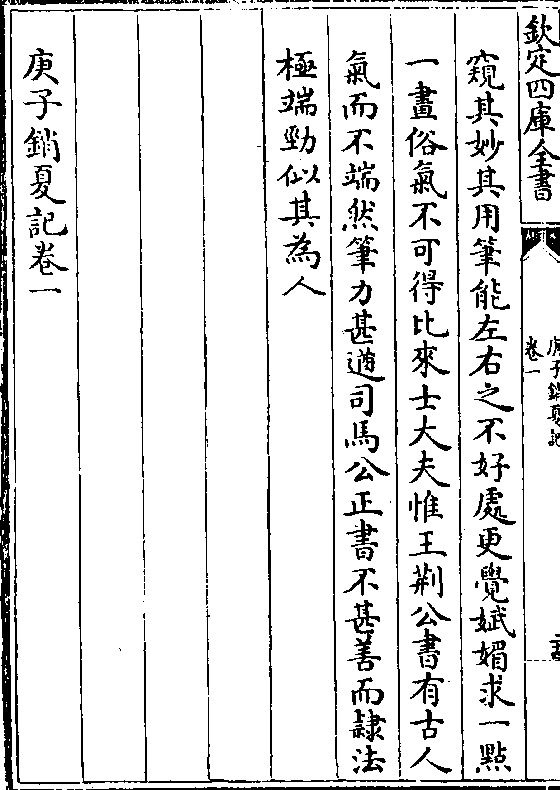 欽定四庫全書
庚子銷夏記
卷一
窺其妙其用筆能左右之不好處更覺娬媚求一點
一畫俗氣不可得比來士大夫惟王荆公書有古人
氣而不端然筆力甚遒司馬公正書不甚善而隷法
極端勁似其為人
庚子銷夏記卷一